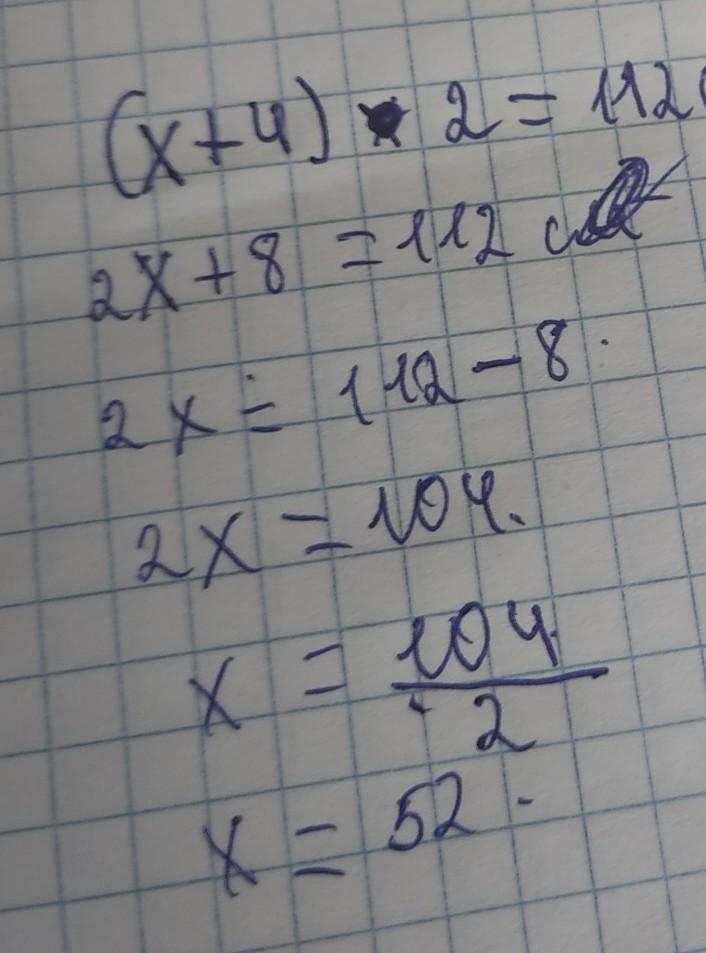 (x+4) • 2 = 112
2x+8 = 112
2x = 112 - 8.
2x = 104.
x = 104/2
x = 52.